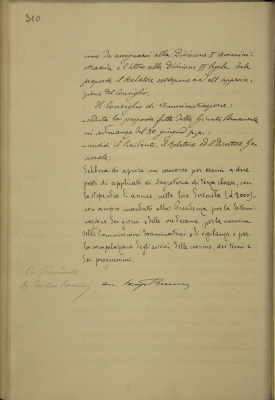 310
uno da assegnarsi alla Divisione I Ammini-
strativa e l'altro alla Divisione II legale. Tale
proposta il Relatore sottopone ora all'approva-
zione del Consiglio.
Il Consiglio di Amministrazione:
veduta la proposta fatta dalla Giunta Permanente
in adunanza del 30 giugno p.p.;
uditi il Presidente, il Relatore ed il Direttore Ge-
nerale;
Delibera di aprire un concorso per esami a due
posti di applicato di Segreteria di terza classe, con
lo stipendio di annue nette lire Duemila (£ 2000),
con ampio mandato alla Presidenza per la determi-
nazione dei giorni, della sede, per la nomina
delle Commissioni esaminatrici e di vigilanza e per
la compilazione degli avvisi, delle norme, dei temi e
dei programmi.
Presidente